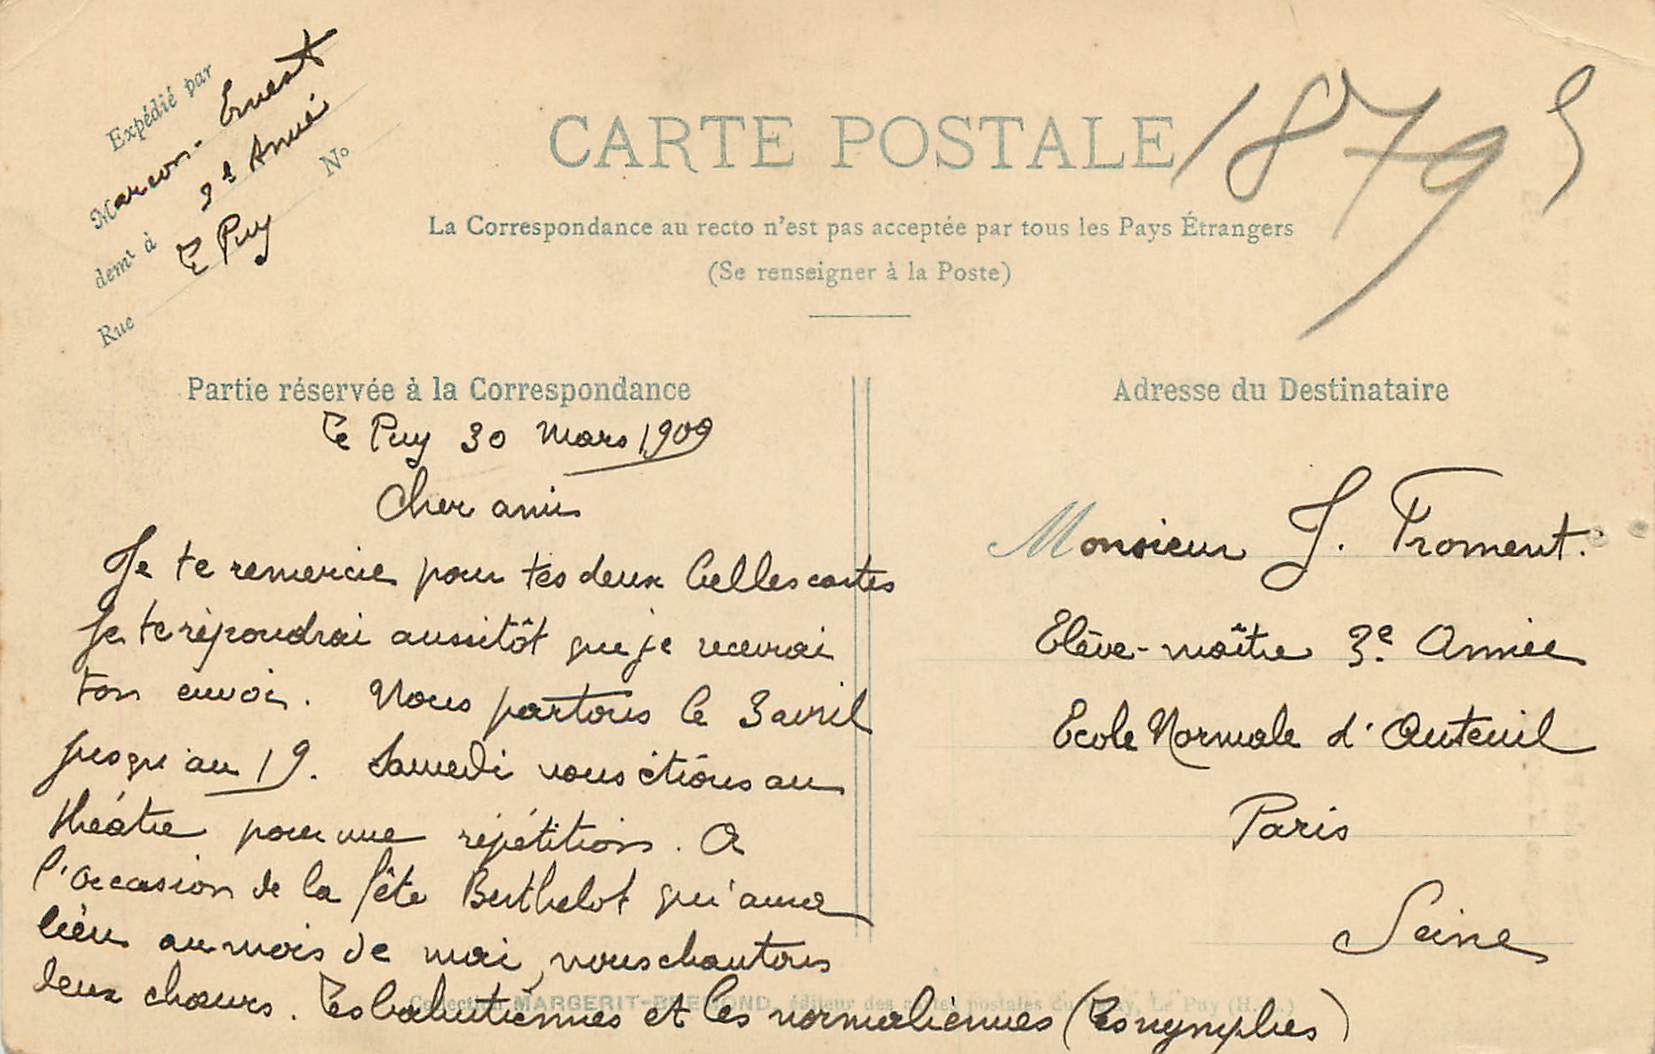 Expédié par
Marcon - Ernest
3e Année
demt à Le Puy
Rue No
CARTE POSTALE
1879
La Correspondance au recto n'est pas acceptée par tous les Pays Étrangers
(Se renseigner à la Poste)
Partie réservée à la Correspondance
Le Puy 30 Mars 1909
Cher ami
Je te remercie pour tes deux belles cartes
Je te répondrai aussitôt que je recevrai
ton envoi. Nous partons le 3 avril
jusqu'au 19. Samedi nous étions au
théâtre pour une répétition. A
l'occasion de la fête Berthelot qui aura
lieu au mois de mai, nous chantons
deux chœurs. Les et les normaliennes (Les nymphes)
Collection MARGERIT-BREMOND, éditeur des cartes postales du Velay, Le Puy (H.-L.)
Adresse du Destinataire
Monsieur J. Froment.
Elève-maître 3e Année
Ecole Normale d'Auteuil
Paris
Seine